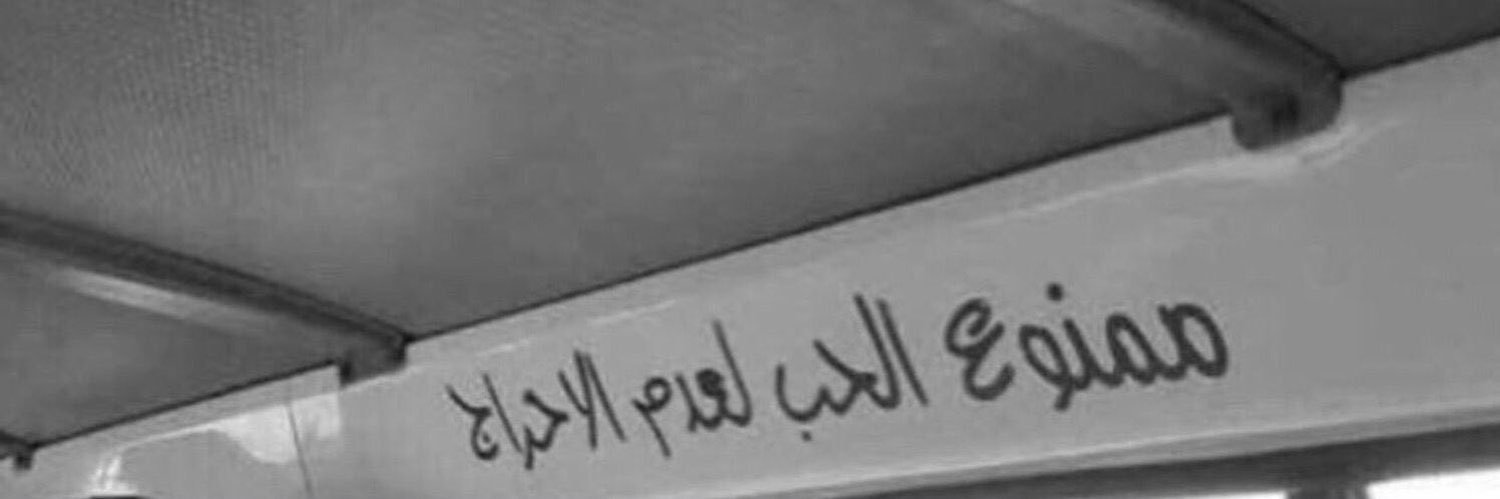 ممنوع الحب لعدم الاحراج